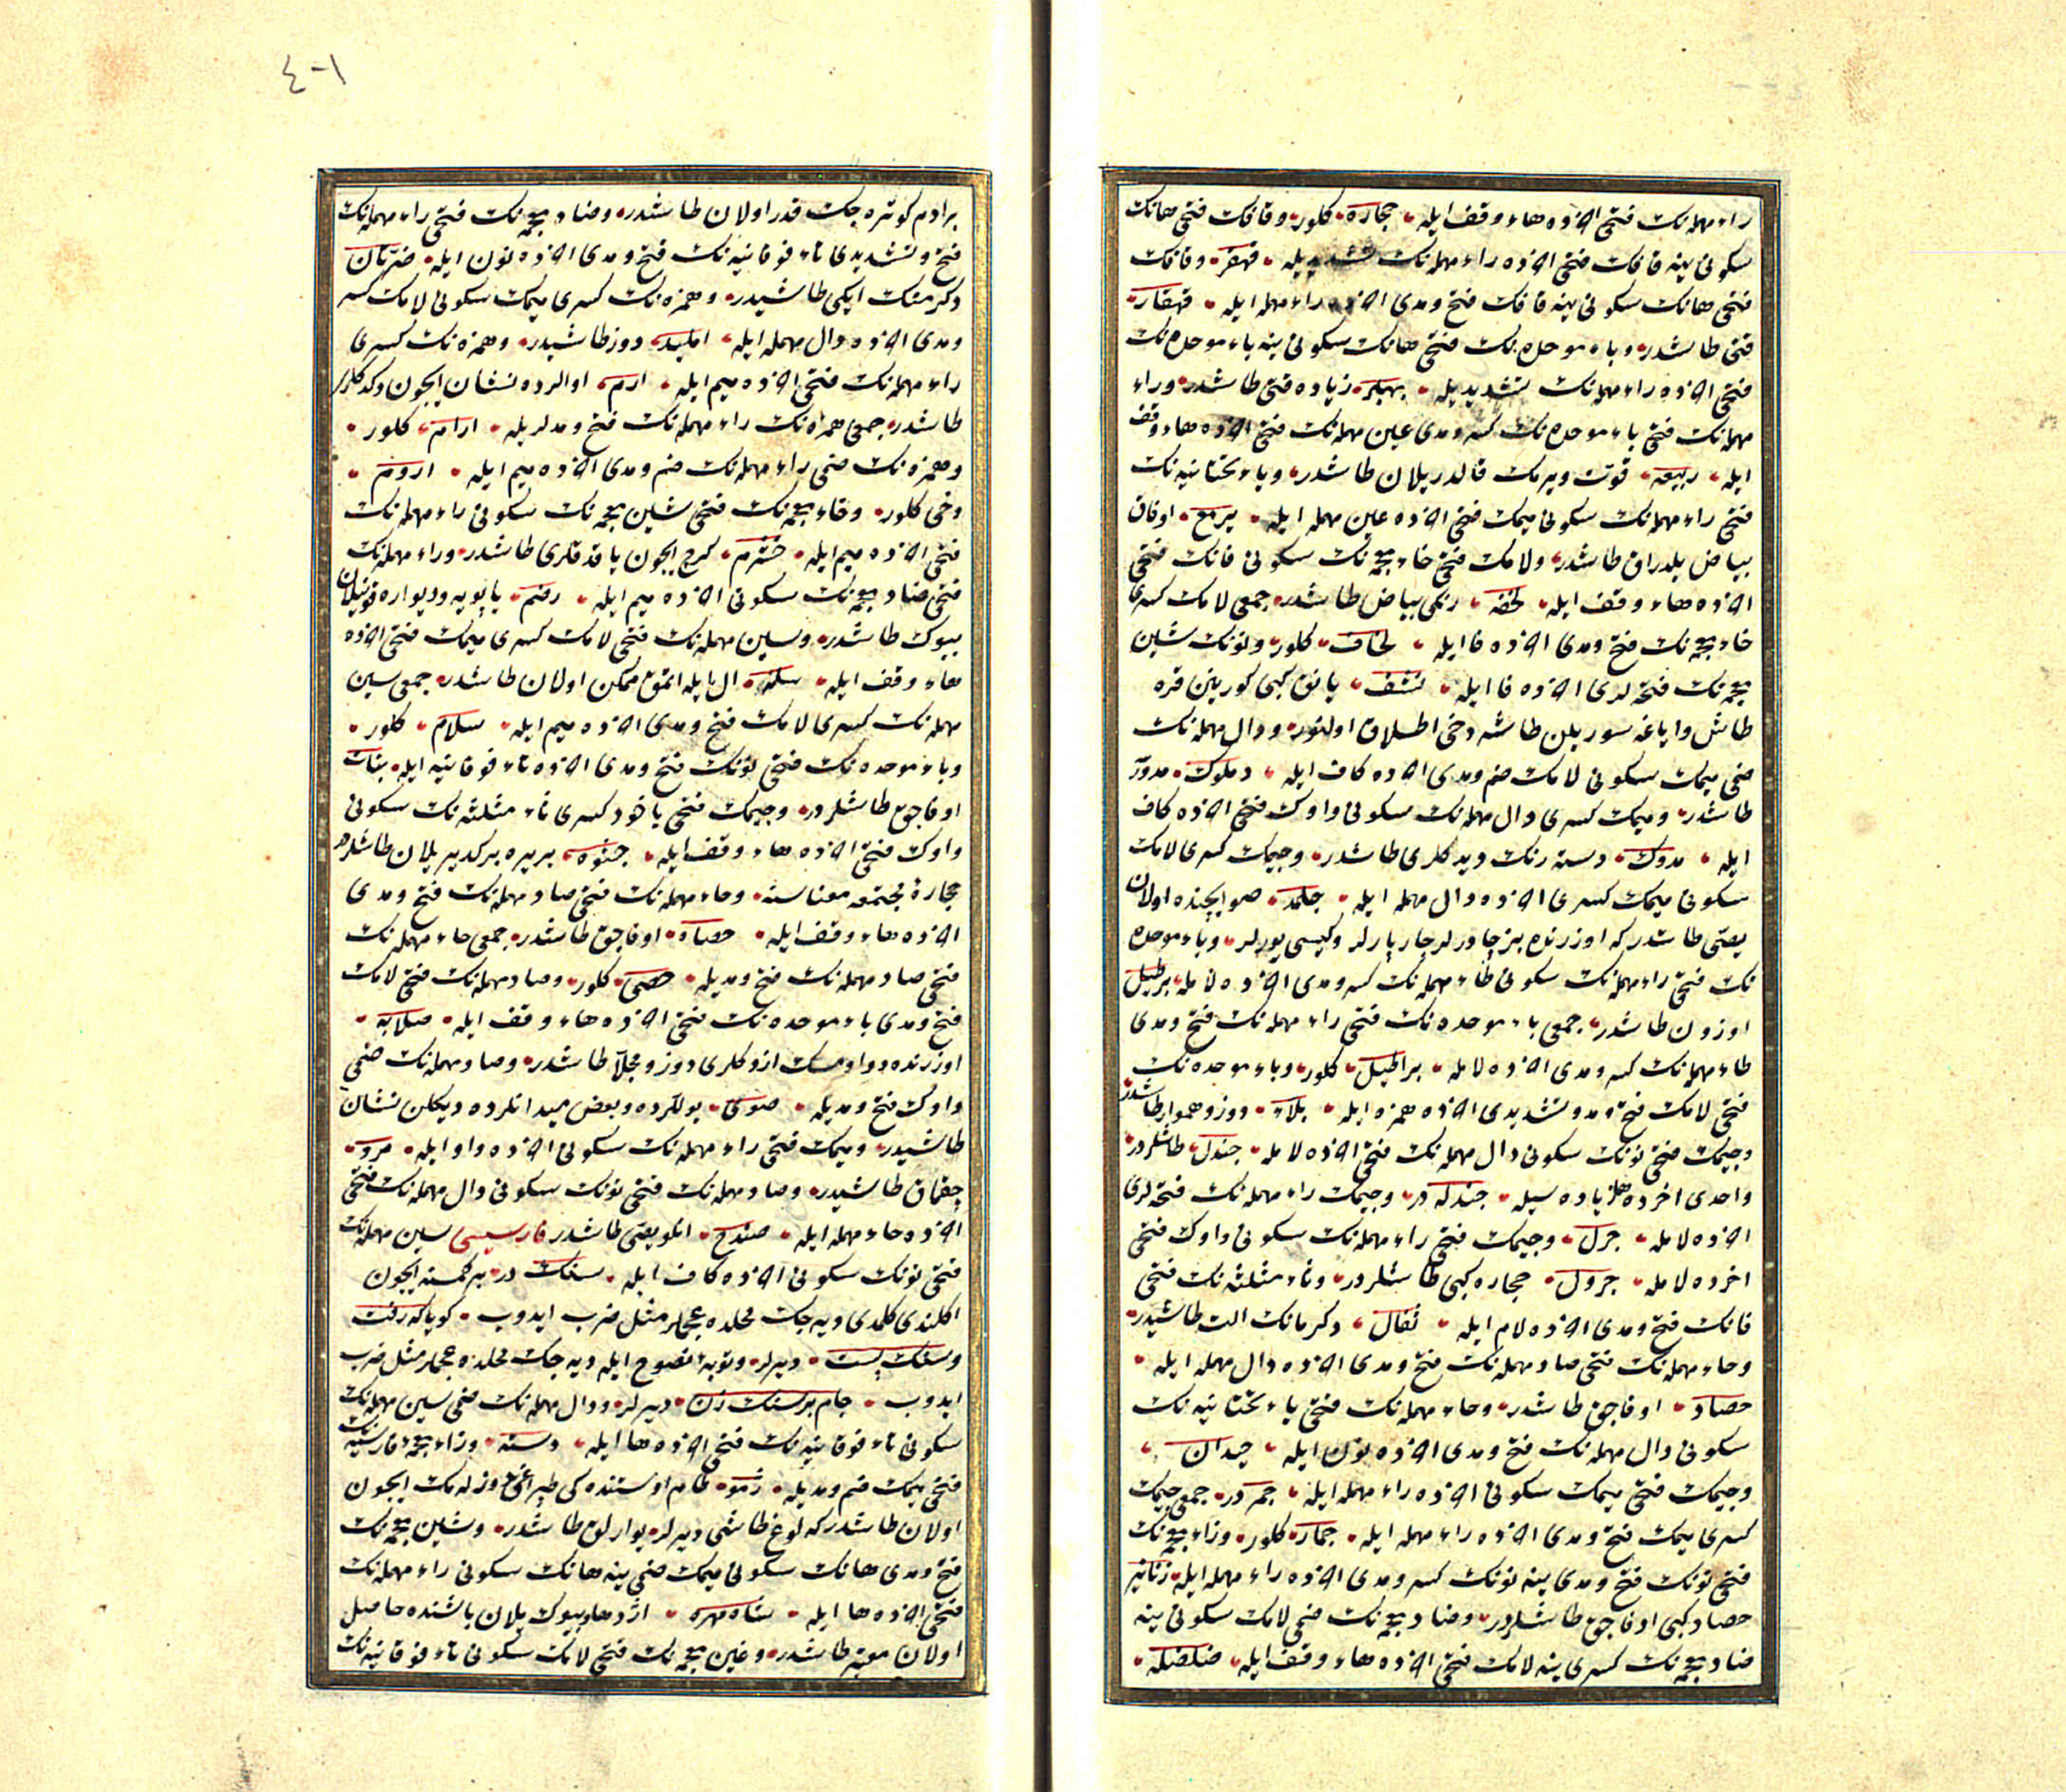 راء مهمله‌نك فتحی اخرده هاء وقف ایله حجاره كلور وقافك فتحی هانك
سكونی ینه قافك فتحی اخرده راء مهمله‌نك تشدیدیله قهقر وقافك
فتحی هانك سكونی ینه قافك فتح ومدی اخرده راء مهمله ایله قهقار
قتی طاشدر وباء موحده‌نك فتحی هانك سكونی ینه باء موحده‌نك
فتحی اخرده راء مهمله‌نك تشدیدیله بهبر زیاده قتی طاشدر وراء
مهمله‌نك فتحی باء موحده‌نك كسر ومدی عین مهمله‌نك فتحی اخرده هاء وقف
ایله ربیعه قوت ویرمك قالدریلان طاشدر ویاء تحتانیه‌نك
فتحی راء مهمله‌نك سكونی میمك فتحی اخرده عین مهمله ایله یرمع اوفاق
بیاض یلدراق طاشدر ولامك فتحی خاء معجمه‌نك سكونی فانك فتحی
اخرده هاء وقف ایله لخفه رنكی بیاض طاشدر جمعی لامك كسری
خاء معجمه‌نك فتح ومدی اخرده فا ایله لخاف كلور ونونك شین
معجمه‌نك فتحه‌لری اخرده فا ایله نشف یانق كبی كورینن قره
طاش وایاغه سوریلن طاشه دخی اطلاق اولنور ودال مهمله‌نك
ضمی میمك سكونی لامك ضم ومدی اخرده كاف ایله دملوك مدور
طاشدر ومیمك كسری دال مهمله‌نك سكونی واوك فتحی اخرده كاف
ایله مدوك دسته رنك دیدكلری طاشدر وجیمك كسری لامك
سكونی میمك كسری اخرده دال مهمله ایله جلمد صو ایچنده اولان
یصی طاشدر كه اوزرنده بز چادرلر چارپارلر وكیسی یورلر وباء موحده
نك فتحی راء مهمله‌نك سكونی طاء مهمله‌نك كسر ومدی اخرده لامله برطیل
اوزون طاشدر جمعی باء موحده‌نك فتحی راء مهمله‌نك فتح ومدی
طاء مهمله‌نك كسر ومدی اخرده لامله براطیل كلور وباء موحده‌نك
فتحی لامك فتح ومد وتشدیدی اخرده همزه ایله بلاء دوز وهموار طاشدر
وجیمك فتحی نونك سكونی دال مهمله‌نك فتحی اخرده لامله جندل طاشلردر
واحدی اخرده هاء زیاده‌سیله جندله در وجیمك راء مهمله‌نك فتحه‌لری
اخرده لامله جرل وجیمك فتحی راء مهمله‌نك سكونی واوك فتحی
اخرده لامله جرول حجاره كبی طاشلردر وثاء مثلثه‌نك فتحی
فانك فتح ومدی اخرده لام ایله ثفال دكرمانك الت طاشیدر
وحاء مهمله‌نك فتحی صاد مهمله‌نك فتح ومدی اخرده دال مهمله ایله
حصاد اوفاجق طاشدر وحاء مهمله‌نك فتحی یاء تحتانیه‌نك
سكونی دال مهمله‌نك فتح ومدی اخرده نون ایله حیدان
وجیمك فتحی میمك سكونی اخرده راء مهمله ایله جمر در جمعی جیمك
كسری میمك فتح ومدی اخرده راء مهمله ایله جمار كلور وزاء معجمه‌نك
فتحی نونك فتح ومدی ینه نونك كسر ومدی اخرده راء مهمله ایله زنانیر
حصاد كبی اوفاجق طاشلردر وضاد معجمه‌نك ضمی لامك سكونی ینه
ضاد معجمه‌نك كسری ینه لامك فتحی اخرده هاء وقف ایله ضلضله
٤٠١
بر ادم كوتره‌جك قدر اولان طاشدر وضاد معجمه‌نك فتحی راء مهمله‌نك
فتح وتشدیدی تاء فوقانیه‌نك فتح ومدی اخرده نون ایله ضرتان
دكرمنك ایكی طاشیدر وهمزه‌نك كسری میمك سكونی لامك كسر
ومدی اخرده دال مهمله ایله املید دوز طاشیدر وهمزه‌نك كسری
راء مهمله‌نك فتحی اخرده میم ایله ارم اوالرده نشان ایچون دكدكلری
طاشدر جمعی همزه‌نك راء مهمله‌نك فتح ومدلریله ارام كلور
وهمزه‌نك ضمی راء مهمله‌نك ضم ومدی اخرده میم ایله اروم
دخی كلور وخاء معجمه‌نك فتحی شین معجمه‌نك سكونی راء مهمله‌نك
فتحی اخرده میم ایله خشرم كرج ایچون یاقدقلری طاشدر وراء مهمله‌نك
فتحی ضاد معجمه‌نك سكونی اخرده میم ایله رضم یاپویه ودیواره قونیلان
بیوك طاشدر وسین مهمله‌نك فتحی لامك كسری میمك فتحی اخرده
هاء وقف ایله سلمه ال ایله اتمق ممكن اولان طاشدر جمعی سین
مهمله‌نك كسری لامك فتح ومدی اخرده میم ایله سلام كلور
وباء موحده‌نك فتحی نونك فتح ومدی اخرده تاء فوقانیه ایله بنات
اوفاجق طاشلردر وجیمك فتحی یاخود كسری ثاء مثلثه‌نك سكونی
واوك فتحی اخرده هاء وقف ایله جثوه بریره بركدیریلان طاشلردر
حجارة مجتمعه معناسنه وحاء مهمله‌نك فتحی صاد مهمله‌نك فتح ومدی
اخرده هاء وقف ایله حصاة اوفاجق طاشدر جمعی حاء مهمله‌نك
فتحی صاد مهمله‌نك فتح ومدیله حصی كلور وصاد مهمله‌نك فتحی لامك
فتح ومدی باء موحده‌نك فتحی اخرده هاء وقف ایله صلابه
اوزرنده دوا ومسك ازدكلری دوز ومجلا طاشدر وصاد مهمله‌نك ضمی
واوك فتح ومدیله صوی یوللرده وبعض میدانلرده دیكلن نشان
طاشیدر ومیمك فتحی راء مهمله‌نك سكونی اخرده واو ایله مرو
چقماق طاشیدر وصاد مهمله‌نك فتحی نونك سكونی دال مهمله‌نك فتحی
اخرده حاء مهمله ایله صندح انلو یصی طاشدر فارسیسی سین مهمله‌نك
فتحی نونك سكونی اخرده كاف ایله سنك در بر كمسنه ایچون
اكلندی كلمدی دیه‌جك محلده عجملر مثل ضرب ایدوب كویا كه رفت
وسنك بست دیرلر وتوبه نصوح ایله دیه‌جك محلده عجملر مثل ضرب
ایدوب جام بر سنك زن دیرلر ودال مهمله‌نك ضمی سین مهمله‌نك
سكونی تاء فوقانیه‌نك فتحی اخرده ها ایله دسته وزاء معجمه فارسیه‌نك
فتحی میمك ضم ومدیله ژمو طام اوستنده‌كی طپراغی دوزلمك ایچون
اولان طاشدر كه لوغ طاشی دیرلر یوارلق طاشدر وشین معجمه‌نك
فتح ومدی هانك سكونی میمك ضمی ینه هانك سكونی راء مهمله‌نك
فتحی اخرده ها ایله شاه مهره اژدها وبیوك یلان باشنده حاصل
اولان معتبر طاشدر وغین معجمه‌نك فتحی لامك سكونی تاء فوقانیه‌نك